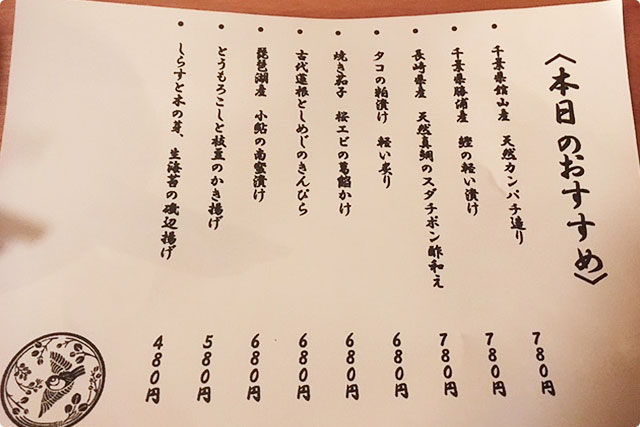 〈本日のおすすめ〉
・千葉県館山産 天然カンパチ造り 780円
・千葉県勝浦産 鰹の軽い漬け 780円
・長崎県産 天然真鯛のスダチポン酢和え 780円
・タコの粕漬け 軽い炙り 680円
・焼き茄子 桜エビの葛餡かけ 680円
・古代蓮根としめじのきんぴら 680円
・琵琶湖産 小鮎の南蛮漬け 680円
・とうもろこしと枝豆のかき揚げ 580円
・しらすと木の芽、生海苔の磯辺揚げ 480円